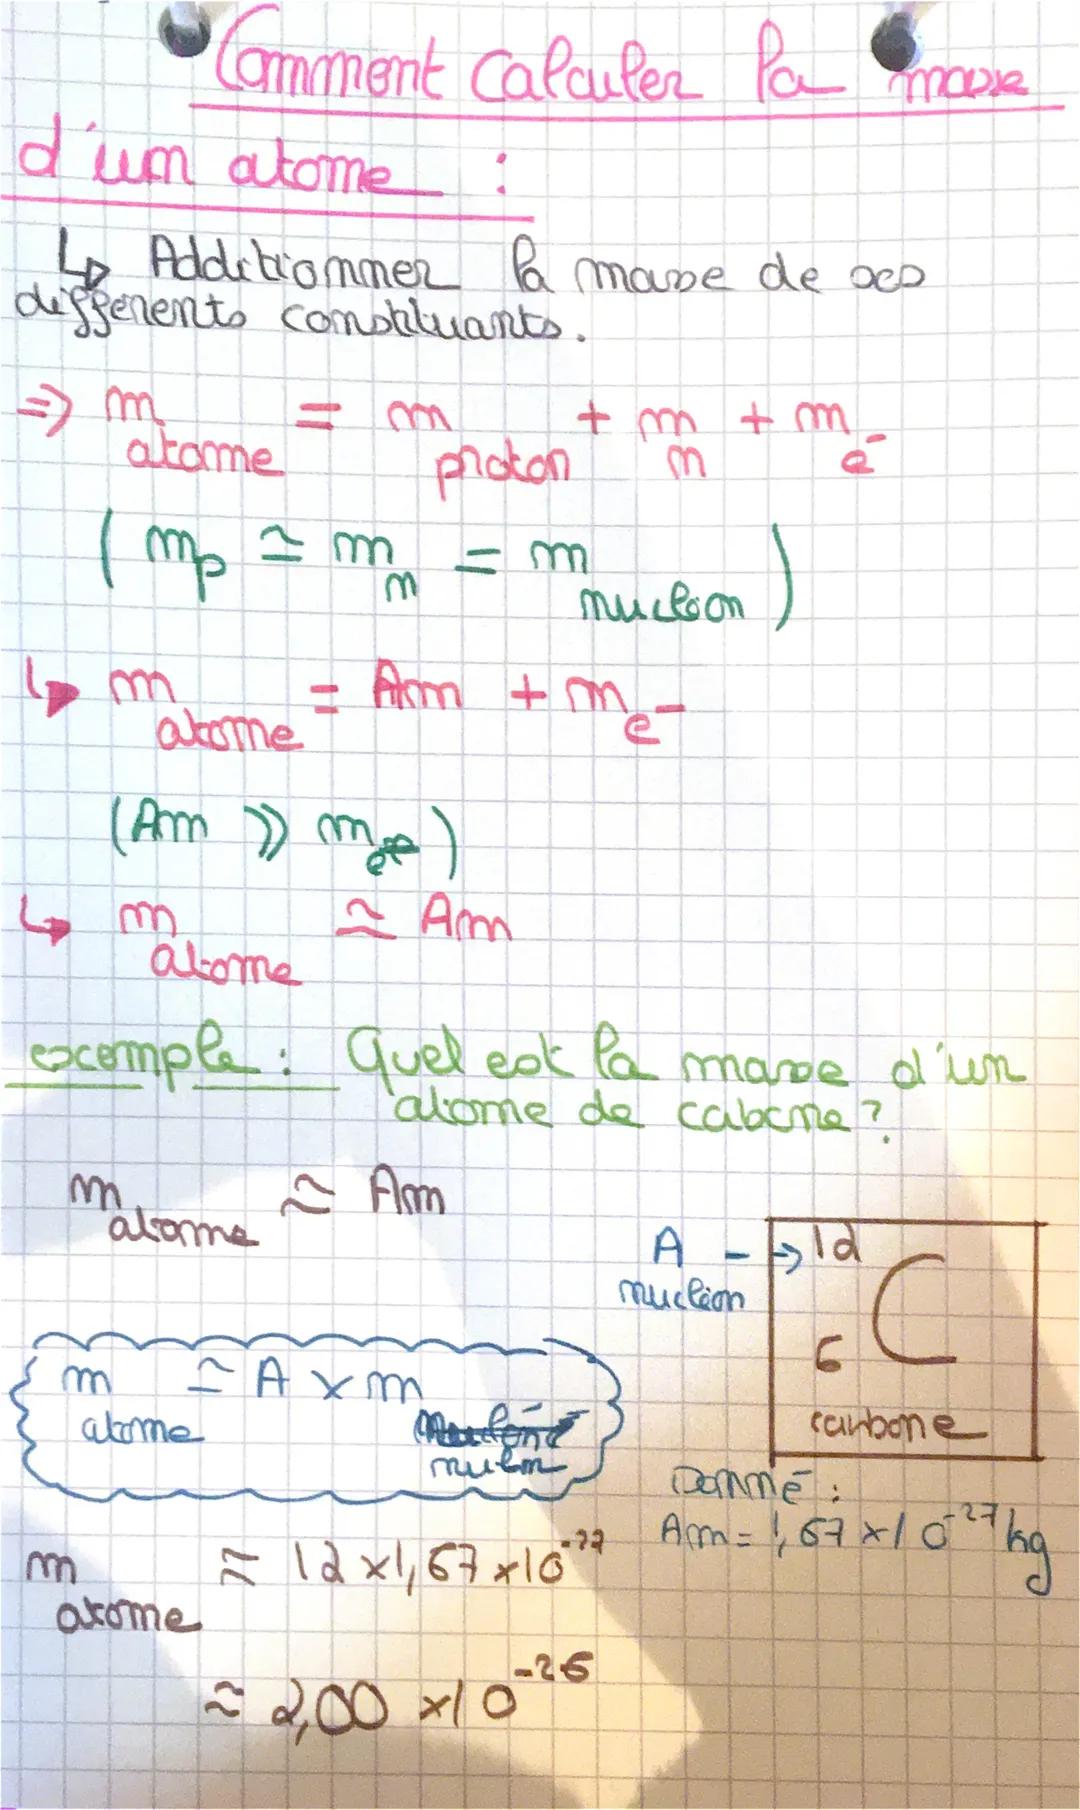 Comment calculer la masse
d'un atome :
↳ Additionner la masse de ses
differents constituants.
=> m atome = m proton + m n + m e⁻
( mp ≃ m n = m nucléon )
↳ m atome = Am + m e⁻
(Am >> m e)
↳ m atome ≃ Am
exemple : Quel est la masse d'un
atome de cabone ?
m atome ≃ Am
A - -> 12
nucléon
C
6
carbone
m atome ≃ A x m
nulén
Donné :
Am = 1,67 x 10⁻²⁷ kg
m atome ≃ 12 x 1,67 x 10⁻²⁷
≃ 2,00 x 10⁻²⁶